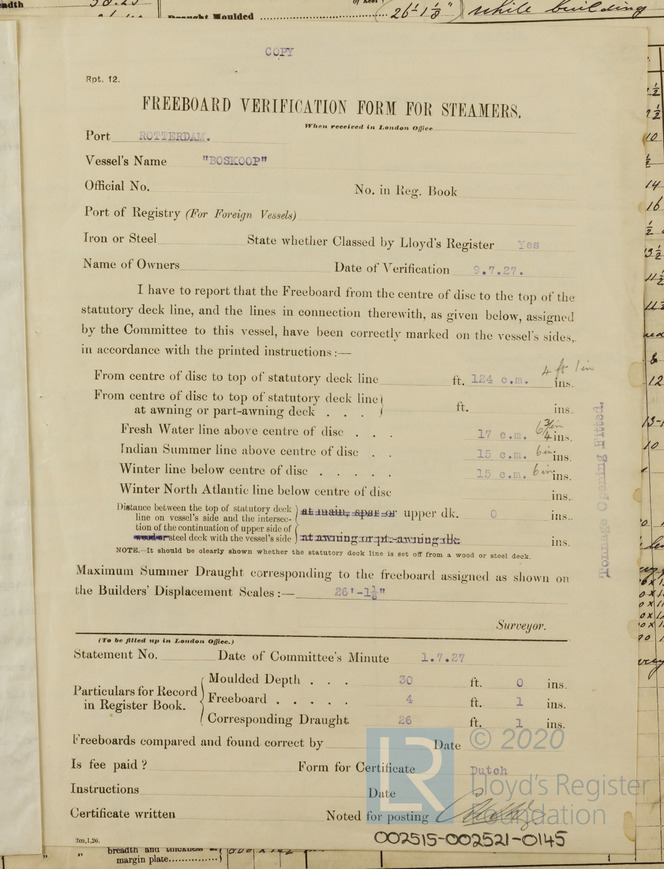 Draught Moulded 26'-1⅛" while building
COPY
Rpt. 12.
FREEBOARD VERIFICATION FORM FOR STEAMERS.
When received in London Office
Port ROTTERDAM.
Vessel's Name "BOSKOOP"
Official No. No. in Reg. Book
Port of Registry (For Foreign Vessels)
Iron or Steel State whether Classed by Lloyd's Register Yes
Name of Owners Date of Verification 9.7.27.
I have to report that the Freeboard from the centre of disc to the top of the
statutory deck line, and the lines in connection therewith, as given below, assigned
by the Committee to this vessel, have been correctly marked on the vessel's sides,
in accordance with the printed instructions:—
4 ft 1 in
From centre of disc to top of statutory deck line ft. 124 c.m. ins.
From centre of disc to top of statutory deck line
at awning or part-awning deck . . . ft. ins.
Fresh Water line above centre of disc . . . 17 c.m. 6¾ in ins.
Indian Summer line above centre of disc . . 15 c.m. 6 in ins.
Winter line below centre of disc . . . . . 15 c.m. 6 in ins.
Winter North Atlantic line below centre of disc ins.
Distance between the top of statutory deck
line on vessel's side and the intersec-
tion of the continuation of upper side of
wooden steel deck with the vessel's side
at main, spar or upper dk. 0 ins.
at awning or pt.-awning dk. ins.
NOTE.—It should be clearly shown whether the statutory deck line is set off from a wood or steel deck.
Tonnage Opening Fitted.
Maximum Summer Draught corresponding to the freeboard assigned as shown on
the Builders' Displacement Scales:— 26'-1⅛"
Surveyor.
(To be filled up in London Office.)
Statement No. Date of Committee's Minute 1.7.27
Particulars for Record
in Register Book.
Moulded Depth . . . 30 ft. 0 ins.
Freeboard . . . . . 4 ft. 1 ins.
Corresponding Draught 26 ft. 1 ins.
Freeboards compared and found correct by Date
Is fee paid? Form for Certificate Dutch
Instructions Date
Certificate written Noted for posting
© 2020
LR
Lloyd's Register
Foundation
002515-002521-0145
breadth and thickness of
margin plate